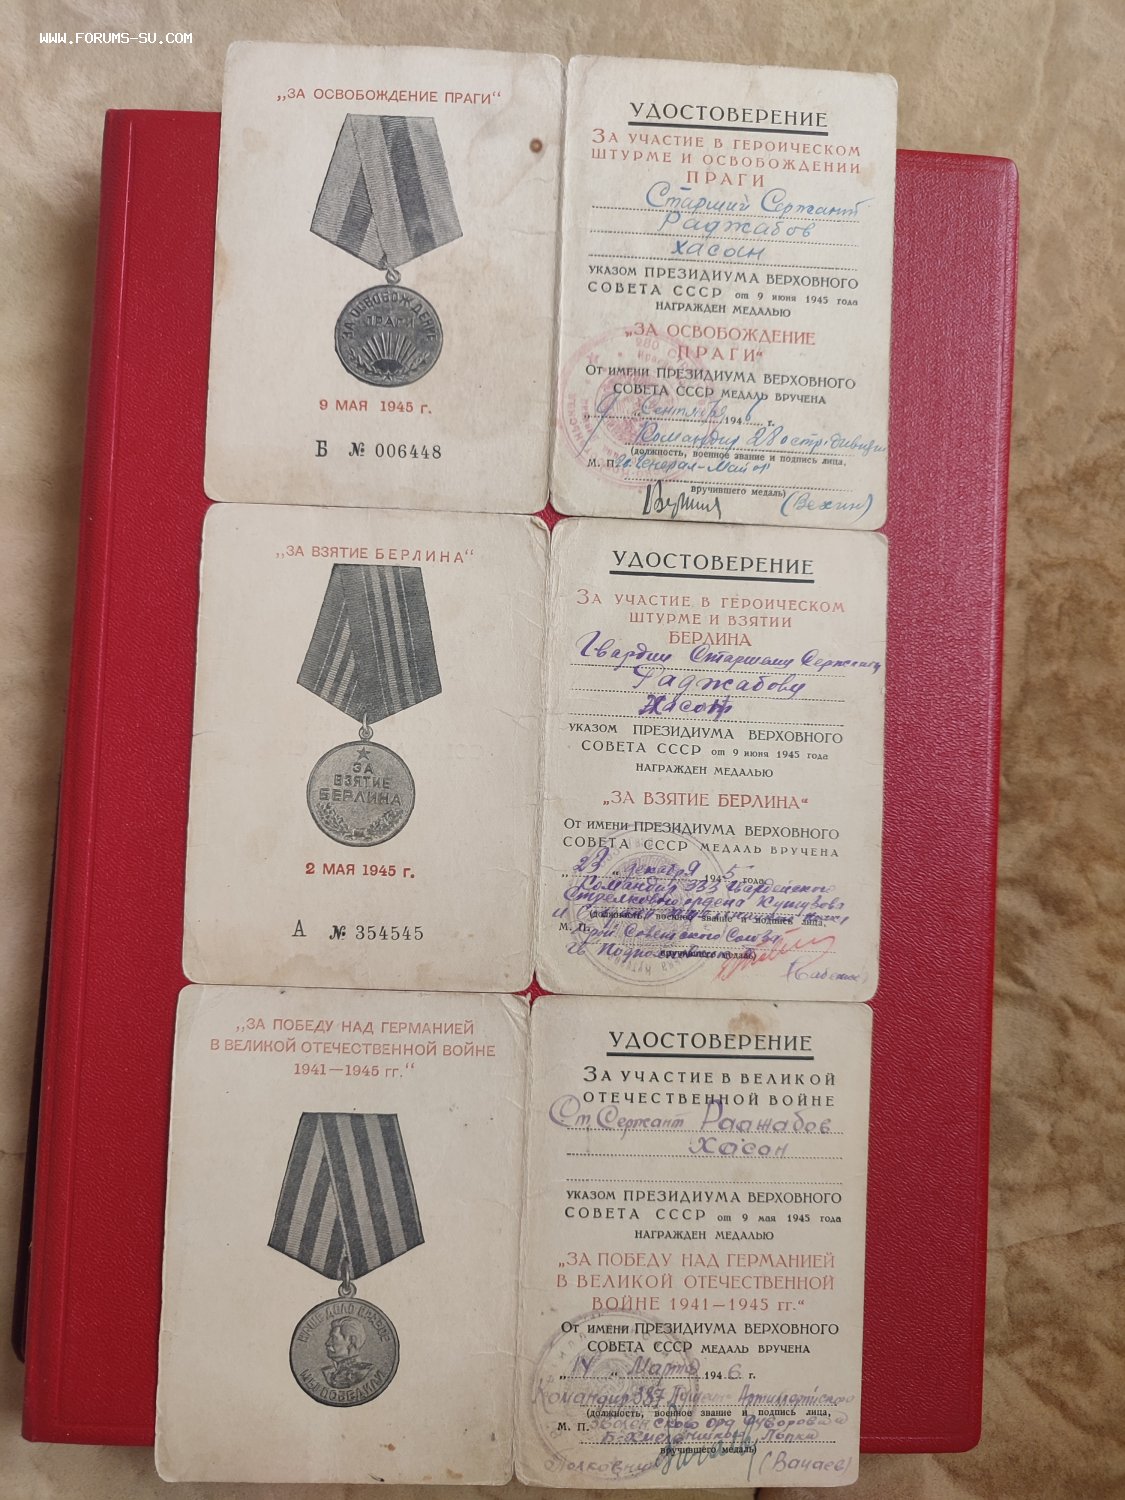 www.forums-su.com
„ЗА ОСВОБОЖДЕНИЕ ПРАГИ“
ЗА ОСВОБОЖДЕНИЕ
ПРАГИ
9 МАЯ 1945 г.
Б № 006448
УДОСТОВЕРЕНИЕ
ЗА УЧАСТИЕ В ГЕРОИЧЕСКОМ
ШТУРМЕ И ОСВОБОЖДЕНИИ
ПРАГИ
Старший Сержант
Раджабов
Хасан
УКАЗОМ ПРЕЗИДИУМА ВЕРХОВНОГО
СОВЕТА СССР от 9 июня 1945 года
НАГРАЖДЕН МЕДАЛЬЮ
„ЗА ОСВОБОЖДЕНИЕ
ПРАГИ“
ОТ ИМЕНИ ПРЕЗИДИУМА ВЕРХОВНОГО
СОВЕТА СССР МЕДАЛЬ ВРУЧЕНА
„9“ Сентября 194 г.
Командир 280 стр. дивизии
(должность, военное звание и подпись лица,
М. П. Генерал-Майор
вручившего медаль)
(Вехин)
„ЗА ВЗЯТИЕ БЕРЛИНА“
ЗА
ВЗЯТИЕ
БЕРЛИНА
2 МАЯ 1945 г.
А № 354545
УДОСТОВЕРЕНИЕ
ЗА УЧАСТИЕ В ГЕРОИЧЕСКОМ
ШТУРМЕ И ВЗЯТИИ
БЕРЛИНА
Гвардии Старшему Сержанту
Раджабову
Хасан
УКАЗОМ ПРЕЗИДИУМА ВЕРХОВНОГО
СОВЕТА СССР от 9 июня 1945 года
НАГРАЖДЕН МЕДАЛЬЮ
„ЗА ВЗЯТИЕ БЕРЛИНА“
ОТ ИМЕНИ ПРЕЗИДИУМА ВЕРХОВНОГО
СОВЕТА СССР МЕДАЛЬ ВРУЧЕНА
„23“ декабря 1945 года
Командир 333 Гвардейского
Стрелкового ордена Кутузова
(должность, военное звание и подпись лица,
М. П. Герой Советского Союза
гв. Подполковник
вручившего медаль)
„ЗА ПОБЕДУ НАД ГЕРМАНИЕЙ
В ВЕЛИКОЙ ОТЕЧЕСТВЕННОЙ ВОЙНЕ
1941—1945 гг.“
НАШЕ ДЕЛО ПРАВОЕ
МЫ ПОБЕДИЛИ
УДОСТОВЕРЕНИЕ
ЗА УЧАСТИЕ В ВЕЛИКОЙ
ОТЕЧЕСТВЕННОЙ ВОЙНЕ
Ст. Сержант Раджабов
Хасан
УКАЗОМ ПРЕЗИДИУМА ВЕРХОВНОГО
СОВЕТА СССР от 9 мая 1945 года
НАГРАЖДЕН МЕДАЛЬЮ
„ЗА ПОБЕДУ НАД ГЕРМАНИЕЙ
В ВЕЛИКОЙ ОТЕЧЕСТВЕННОЙ
ВОЙНЕ 1941—1945 гг.“
ОТ ИМЕНИ ПРЕЗИДИУМА ВЕРХОВНОГО
СОВЕТА СССР МЕДАЛЬ ВРУЧЕНА
„14“ Марта 1946 г.
Командир 387 Пушеч. Артиллерийского
(должность, военное звание и подпись лица,
М. П. орд Суворова и
Б. Хмельницкого Полка
вручившего медаль)
Полковник (Ванаев)